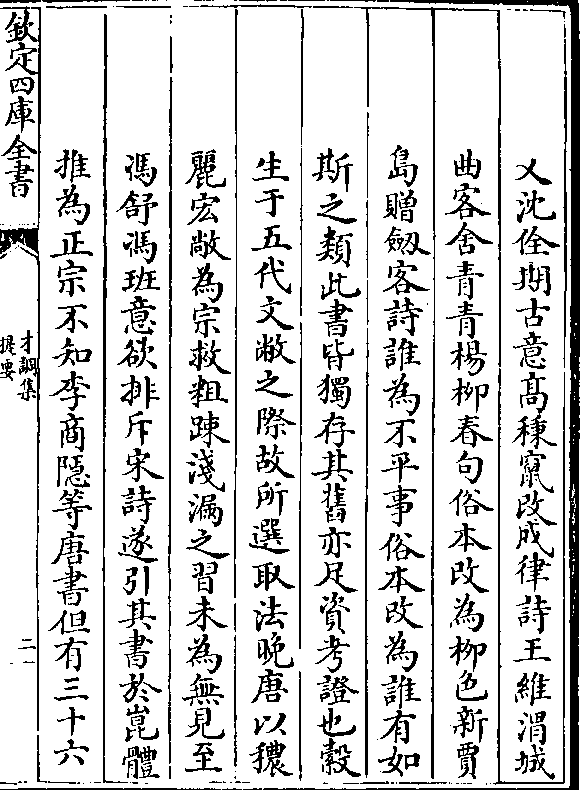 又沈佺期古意高稜竄改成律詩王維渭城
曲客舍青青楊柳春句俗本改為柳色新賈
島贈劒客詩誰為不平事俗本改為誰有如
斯之類此書皆獨存其舊亦足資考證也縠
生于五代文敝之際故所選取法晚唐以穠
麗宏敞為宗救粗疎淺漏之習未為無見至
馮舒馮班意欲排斥宋詩遂引其書於崑體
推為正宗不知李商隱等唐書但有三十六
欽定四庫全書
才調集
提要
二